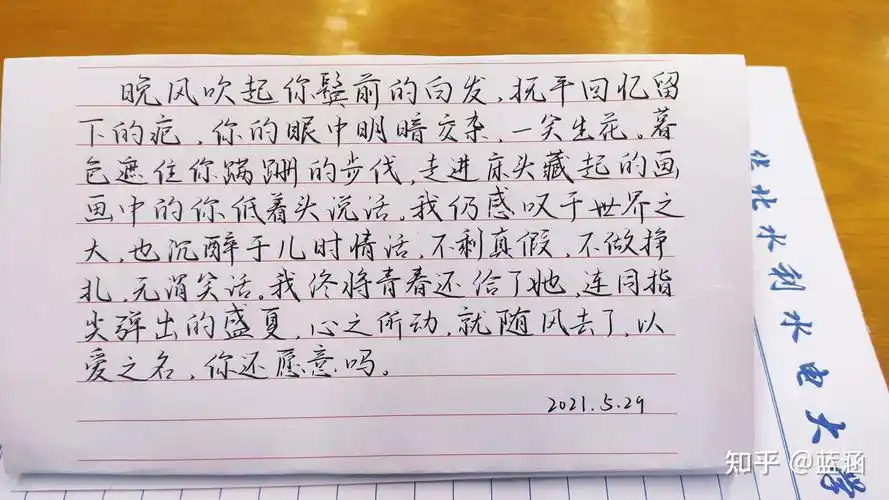 晚风吹起你鬓前的白发，抚平回忆留
下的疤，你的眼中明暗交杂，一笑生花。暮
色遮住你蹒跚的步伐，走进床头藏起的画
画中的你低着头说话。我仍感叹于世界之
大，也沉醉于儿时情话，不剩真假，不做挣
扎，无谓笑话。我终将青春还给了她，连同指
尖弹出的盛夏，心之所动，就随风去了，以
爱之名，你还愿意吗。
2021.5.29
华北水利水电大学
知乎 @蓝涵